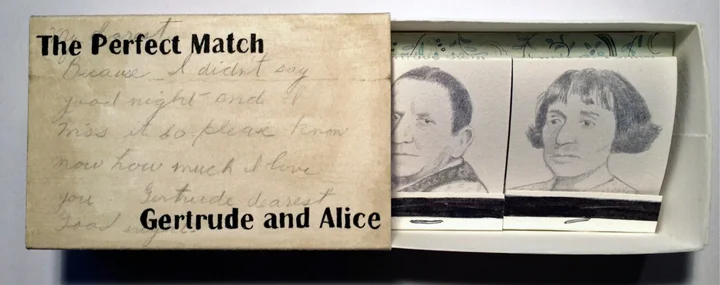 The Perfect Match
my dearest
Because I didn't say
good night and I
miss it so please know
now how much I love
you Gertrude dearest
Gertrude and Alice
Good night